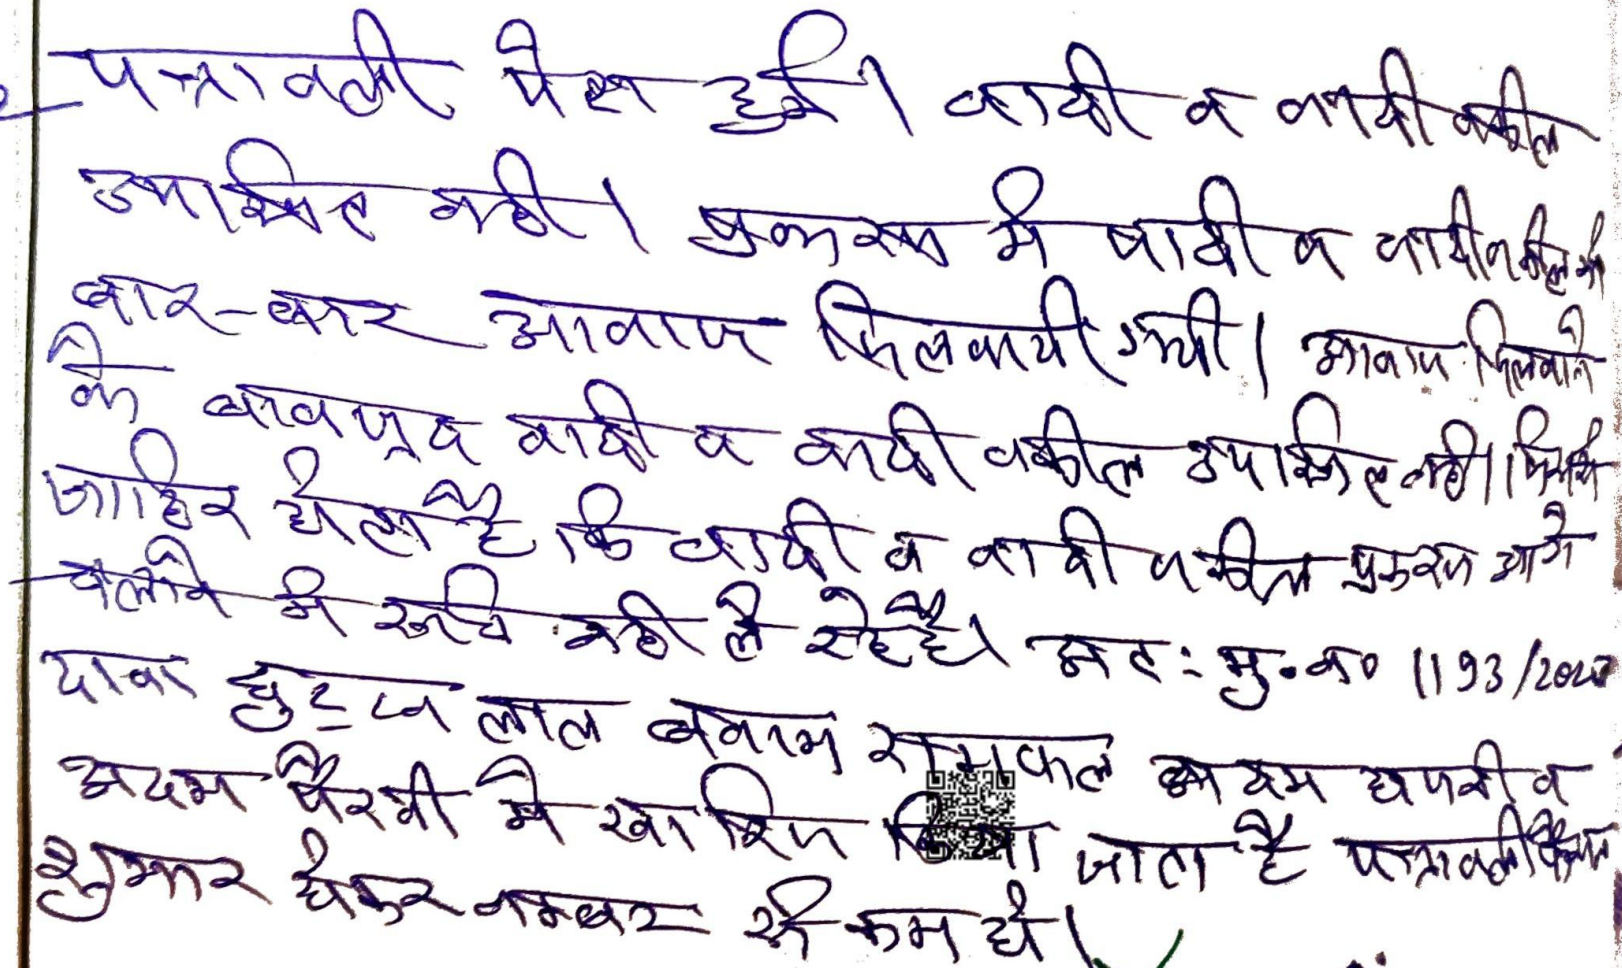 पत्रावली पेश हुई। वादी व वादी वकील
उपस्थित नही। प्रकरण मे वादी व वादी वकील को
बार-बार आवाज दिलवायी गयी। आवाज दिलवाने
के बावजूद वादी व वादी वकील उपस्थित नही। जिससे
जाहिर होता है कि वादी व वादी वकील प्रकरण आगे
चलाने मे रूचि नही ले रहे है। अतः मु.न० 1193/202
दावा लाल बनाम रामफल अदम हाजरी व
अदम पैरवी मे खारिज किया जाता है पत्रावली फैसल
शुमार होकर नम्बर से कम हो।